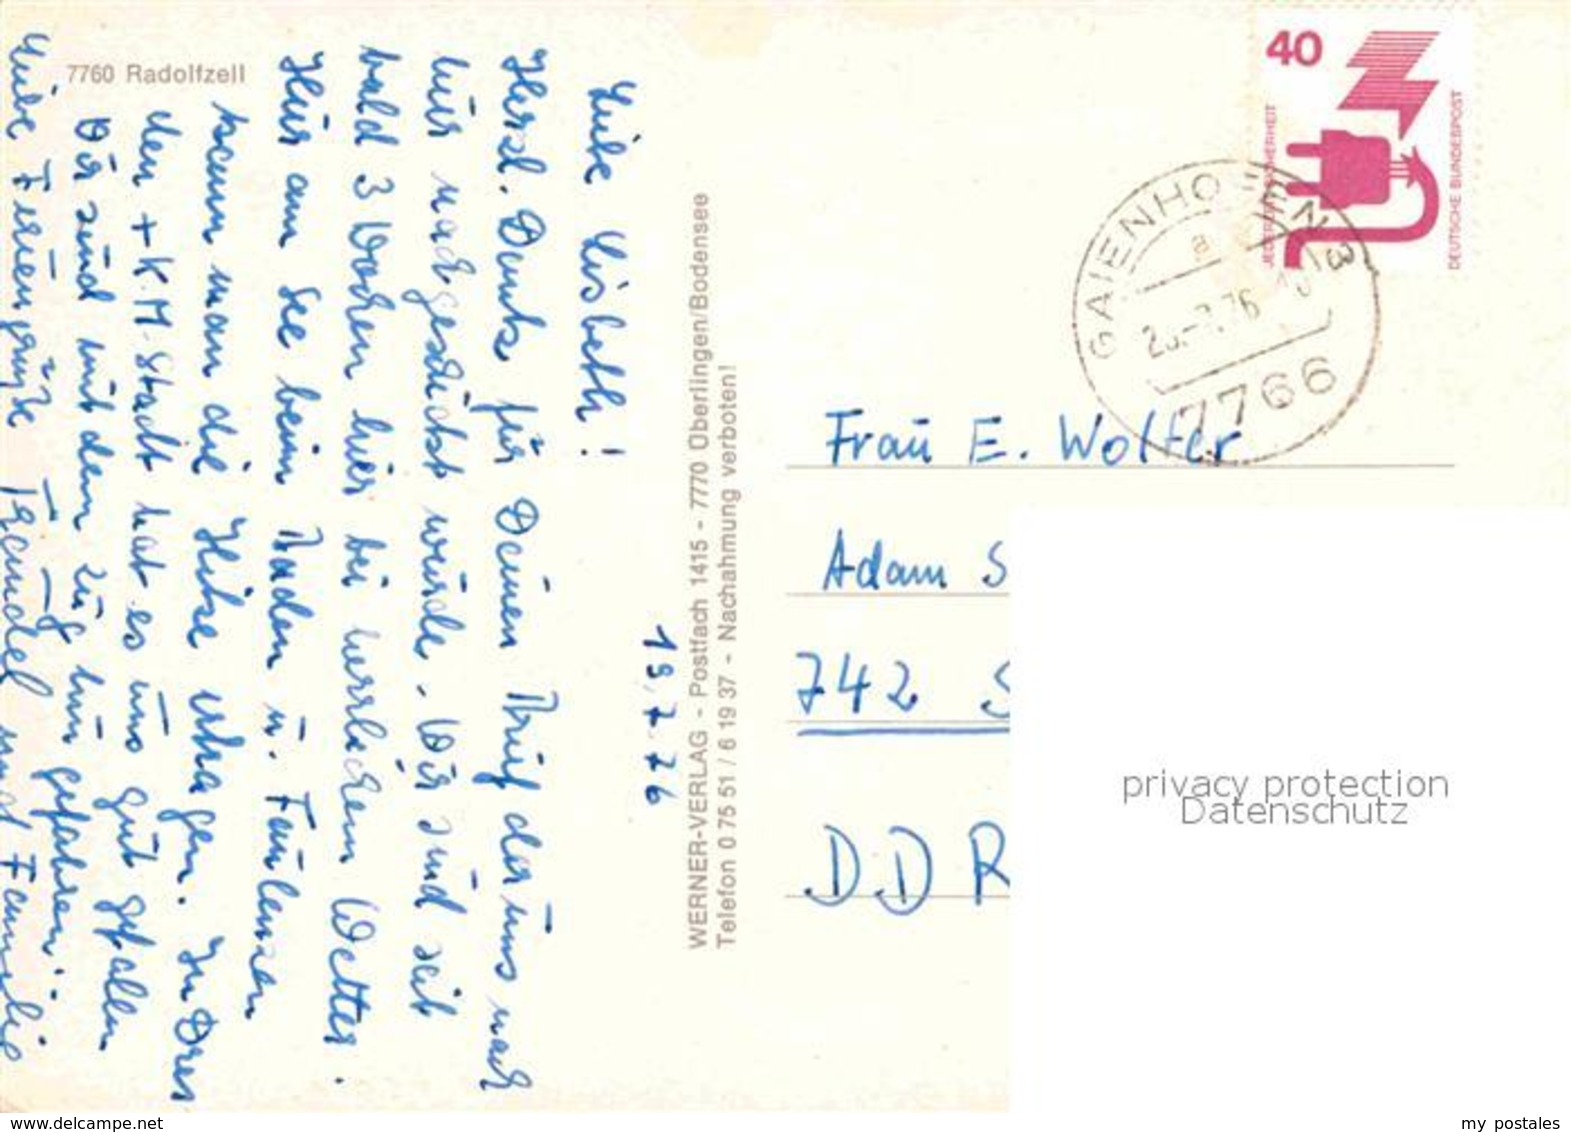 7760 Radolfzell
19.7.76
Liebe Lisbeth!
Herzl. Dank für Deinen Brief der uns nach
hier nachgeschickt wurde. Wir sind seit
bald 3 Wochen hier bei herrlichem Wetter.
Hier am See beim Baden u. Faulenzen
kann man die Hitze ertragen. In Dres
den + K.M.Stadt hat es uns gut gefallen
Wir sind mit dem Zug hin gefahren.
Liebe Feriengrüße und Familie
WERNER-VERLAG - Postfach 1415 - 7770 Überlingen/Bodensee
Telefon 0 75 51 / 6 19 37 - Nachahmung verboten!
40
JEDERZEIT SICHERHEIT
DEUTSCHE BUNDESPOST
GAIENHOFEN 3
a
7.76
7766
Frau E. Wolfer
Adam S
742 S
DDR
privacy protection
Datenschutz
www.delcampe.net
my postales